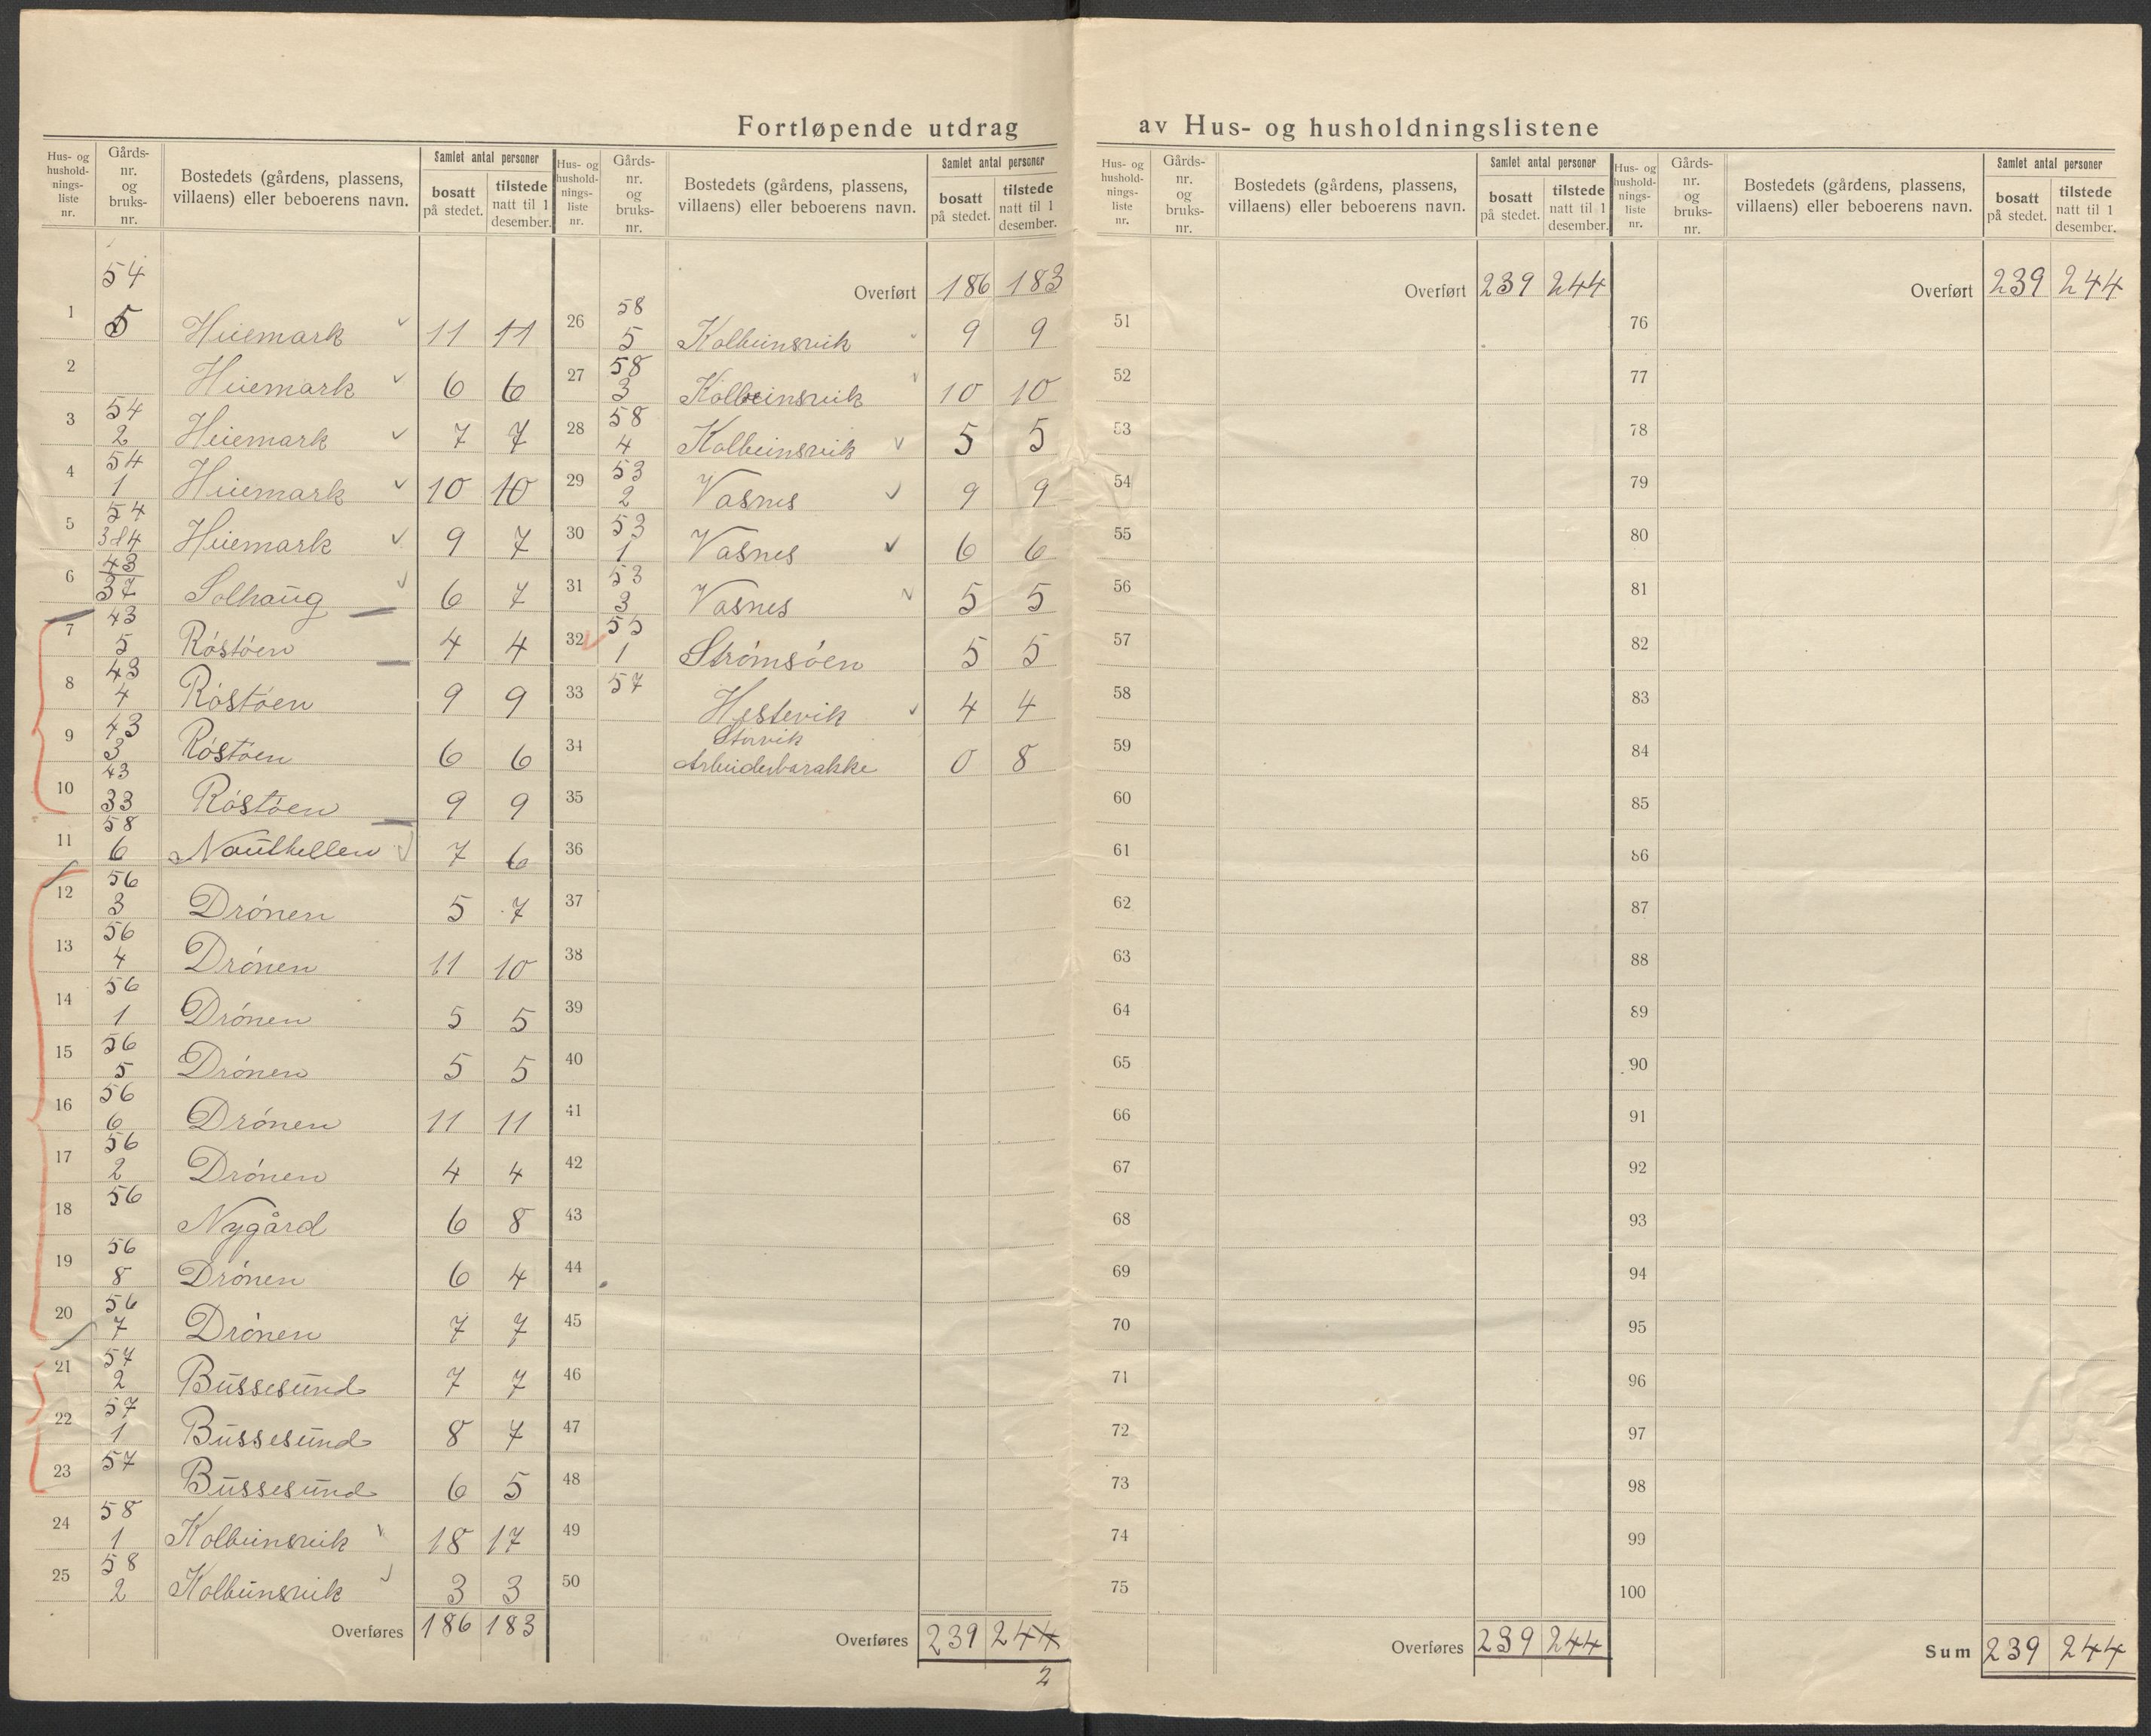 Fortløpende utdrag av Hus- og husholdningslistene
Hus- og husholdnings-liste nr. | Gårds-nr. og bruks-nr. | Bostedets (gårdens, plassens, villaens) eller beboerens navn. | Samlet antal personer | bosatt på stedet. | tilstede natt til 1 desember.
1 54 5 Heiemark 11 11
2 Heiemark 6 6
3 54 2 Heiemark 7 7
4 54 1 Heiemark 10 10
5 54 3&4 Heiemark 9 7
6 43 37 Solhaug 6 7
7 43 5 Röstöen 4 4
8 43 4 Röstöen 9 9
9 43 3 Röstöen 6 6
10 43 33 Röstöen 9 9
11 58 6 Nauthellen 7 6
12 56 3 Drönen 5 7
13 56 4 Drönen 11 10
14 56 1 Drönen 5 5
15 56 5 Drönen 5 5
16 56 6 Drönen 11 11
17 56 2 Drönen 4 4
18 56 Nygård 6 8
19 56 8 Drönen 6 4
20 56 7 Drönen 7 7
21 57 2 Bussesund 7 7
22 57 1 Bussesund 8 7
23 57 Bussesund 6 5
24 58 1 Kolbeinsvik 18 17
25 58 2 Kolbeinsvik 3 3
Overføres 186 183
Hus- og husholdnings-liste nr. | Gårds-nr. og bruks-nr. | Bostedets (gårdens, plassens, villaens) eller beboerens navn. | Samlet antal personer | bosatt på stedet. | tilstede natt til 1 desember.
Overført 186 183
26 58 5 Kolbeinsvik 9 9
27 58 3 Kolbeinsvik 10 10
28 58 4 Kolbeinsvik 5 5
29 53 2 Vasnes 9 9
30 53 1 Vasnes 6 6
31 53 3 Vasnes 5 5
32 55 1 Strömsöen 5 5
33 57 Hestevik 4 4
34 Storvik
Arbeiderbarakke 0 8
35
36
37
38
39
40
41
42
43
44
45
46
47
48
49
50
Overføres 239 244
2
Hus- og husholdnings-liste nr. | Gårds-nr. og bruks-nr. | Bostedets (gårdens, plassens, villaens) eller beboerens navn. | Samlet antal personer | bosatt på stedet. | tilstede natt til 1 desember.
Overført 239 244
51
52
53
54
55
56
57
58
59
60
61
62
63
64
65
66
67
68
69
70
71
72
73
74
75
Overføres 239 244
Hus- og husholdnings-liste nr. | Gårds-nr. og bruks-nr. | Bostedets (gårdens, plassens, villaens) eller beboerens navn. | Samlet antal personer | bosatt på stedet. | tilstede natt til 1 desember.
Overført 239 244
76
77
78
79
80
81
82
83
84
85
86
87
88
89
90
91
92
93
94
95
96
97
98
99
100
Sum 239 244